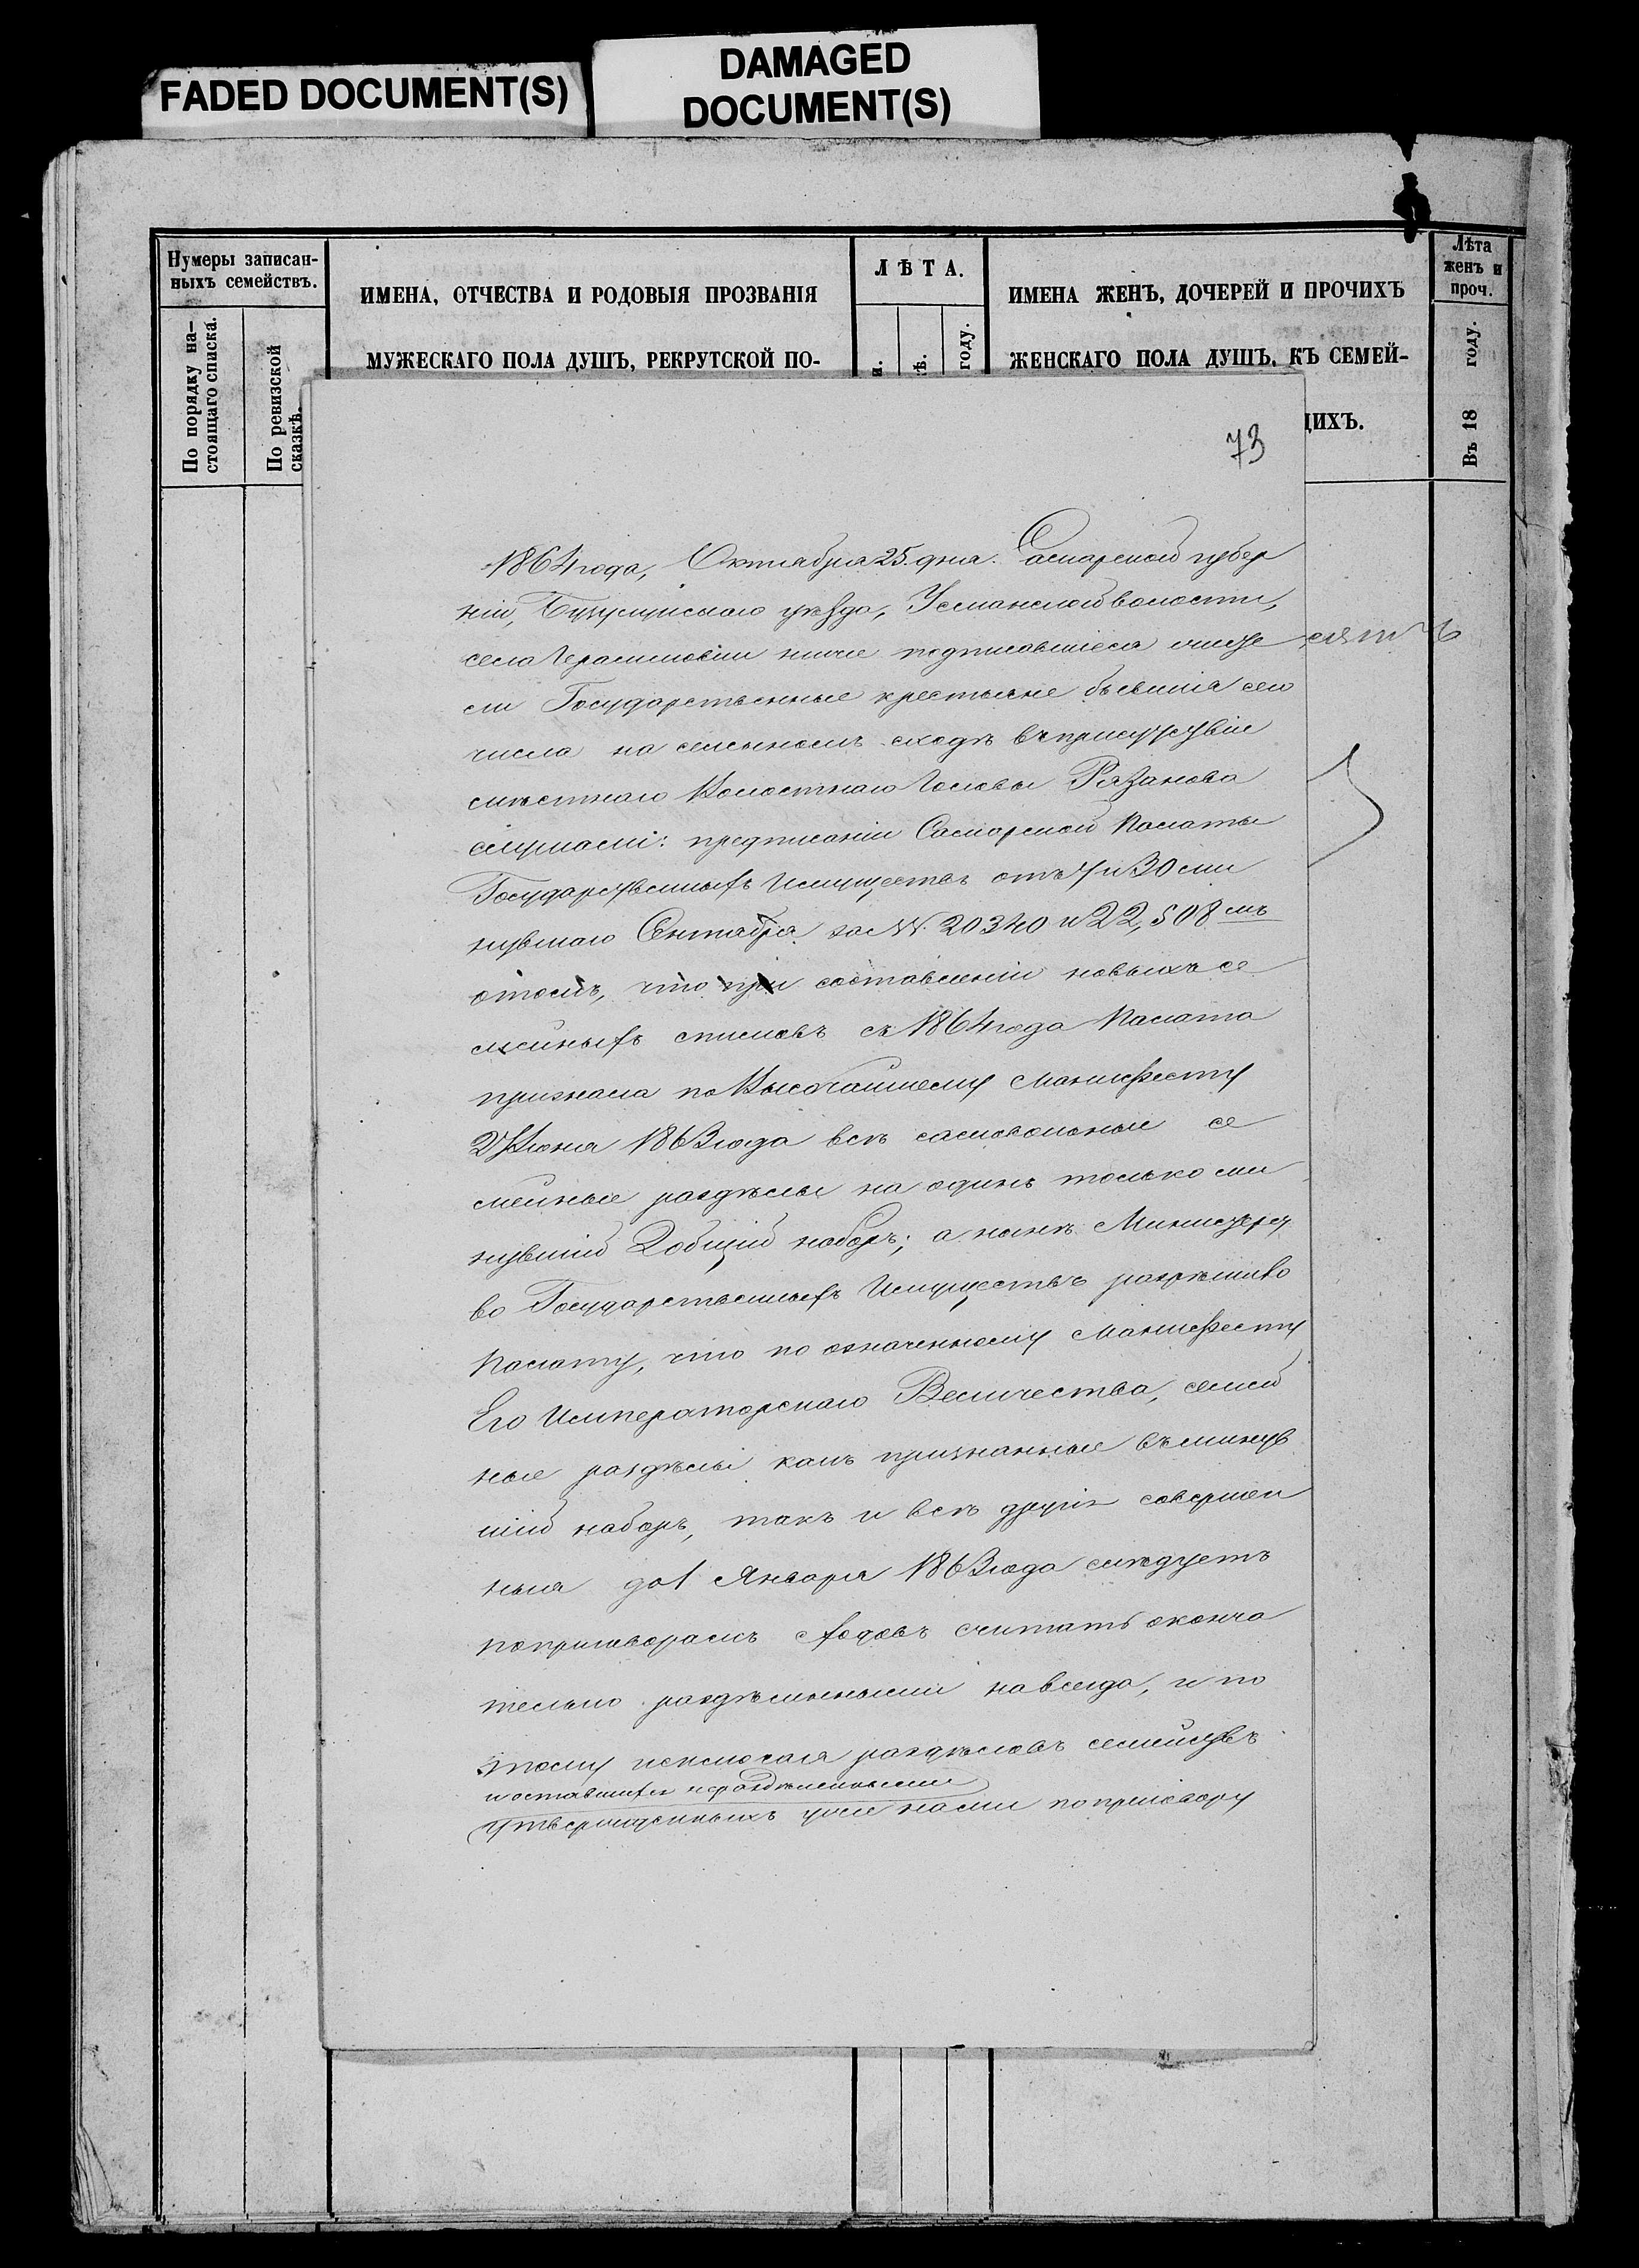 FADED DOCUMENT(S)
DAMAGED
DOCUMENT(S)
Нумеры записан-
ныхъ семействъ.
По порядку на-
стоящаго списка.
По ревизской
сказкѣ.
ИМЕНА, ОТЧЕСТВА И РОДОВЫЯ ПРОЗВАНІЯ
МУЖЕСКАГО ПОЛА ДУШЪ, РЕКРУТСКОЙ ПО-
ЛѢТА.
году.
ИМЕНА ЖЕНЪ, ДОЧЕРЕЙ И ПРОЧИХЪ
ЖЕНСКАГО ПОЛА ДУШЪ, КЪ СЕМЕЙ-
ЩИХЪ.
Лѣта
женъ и
проч.
Въ 18 году.
73
1864 года, Октября 25. дня. Самарской губер
ніи, Бузулукскаго уѣзда, Усманской волости,
села Герасимовки ниже подписавшіеся
Государственные крестьяне бывшія сего
числа на сельскомъ сходѣ въ присутствіи
мѣстнаго Волостнаго Головы Рязанова
слушали: предписаніи Самарской Палаты
Государственныхъ Имуществъ отъ 4 и 30 ми
нувшаго Сентября за N. 20340 и 22,508 мъ
отомъ, что при составленіи новыхъ се
мейныхъ списковъ съ 1864 года Палата
признала по Высочайшему Манифесту
Іюня 1863 года всѣ самовольныя се
мейные раздѣлы на одинъ только ми
нувшій 2 общій наборъ; а нынѣ Министерст
во Государственныхъ Имуществъ разрѣшило
Палату, что по означенному Манифесту
Его Императорскаго Величества, семей
ные раздѣлы какъ признанные въ минув
шій наборъ, такъ и всѣ другія совершен
ныя до 1 Января 1863 года слѣдуетъ
по приговорамъ сходовъ считать оконча
тельно раздѣленными навсегда, и по
этому исключая раздѣловъ семействъ
и оставшихся нераздѣленными
утвержденныхъ уже нами по приговору